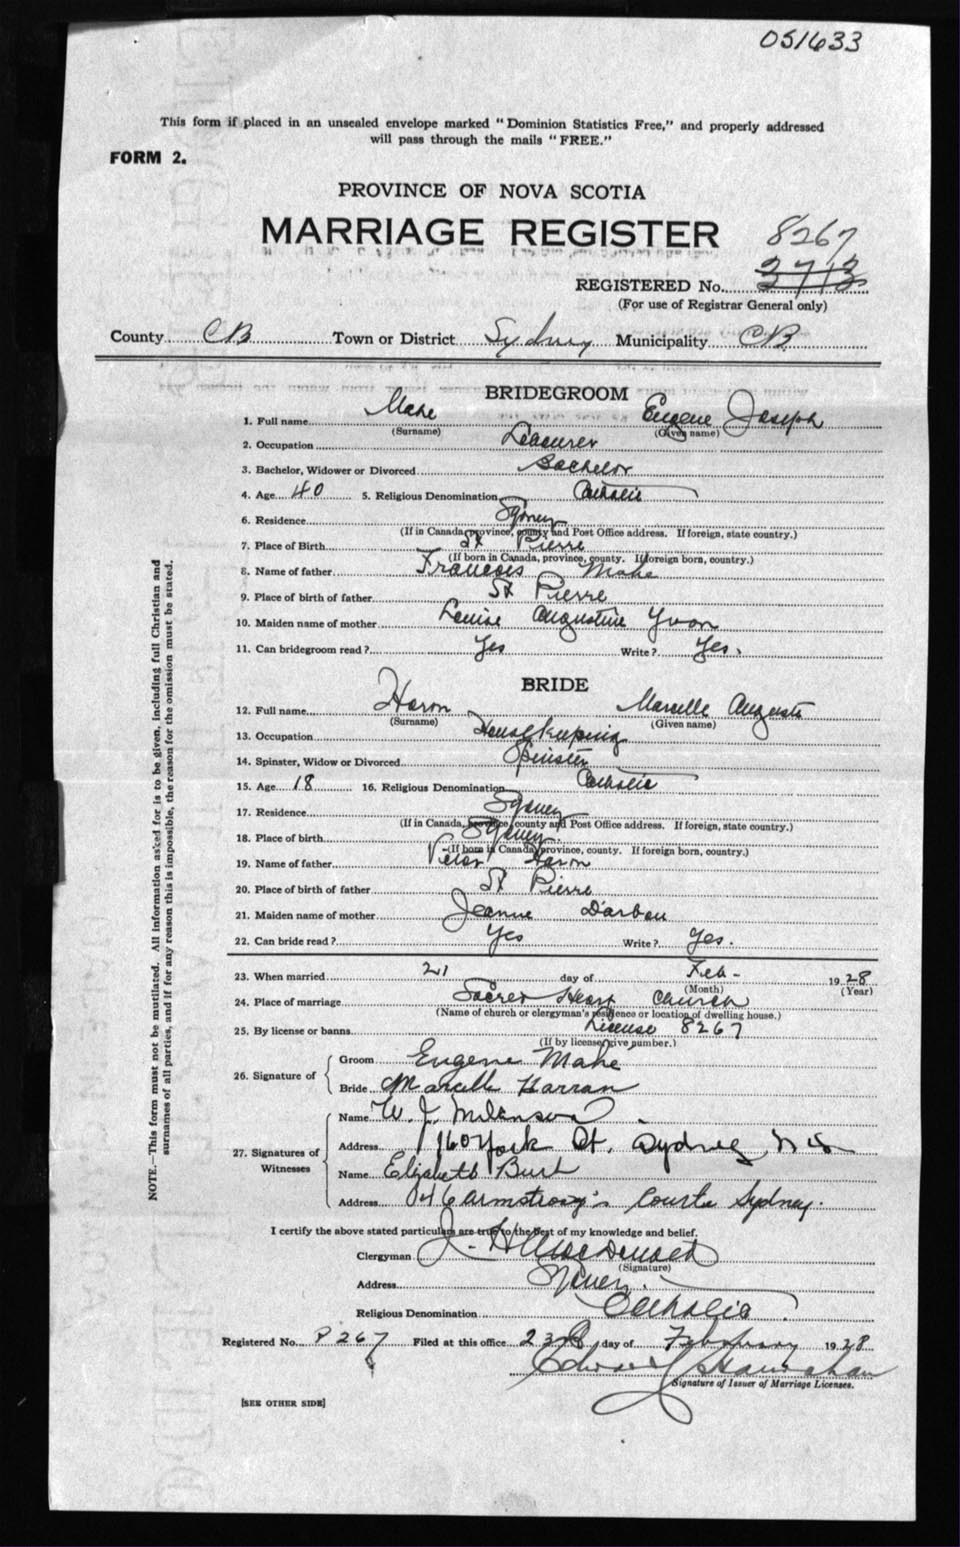 051633
This form if placed in an unsealed envelope marked "Dominion Statistics Free," and properly addressed
will pass through the mails "FREE."
FORM 2.
PROVINCE OF NOVA SCOTIA
MARRIAGE REGISTER
8267
REGISTERED No. 3713
(For use of Registrar General only)
County CB Town or District Sydney Municipality CB
BRIDEGROOM
1. Full name Mahe Eugene Joseph
(Surname) (Given name)
2. Occupation Labourer
3. Bachelor, Widower or Divorced Bachelor
4. Age 40 5. Religious Denomination Catholic
6. Residence Sydney
(If in Canada, province, county and Post Office address. If foreign, state country.)
7. Place of Birth St Pierre
(If born in Canada, province, county. If foreign born, country.)
8. Name of father Francois Mahe
9. Place of birth of father St Pierre
10. Maiden name of mother Louise Augustine Yvon
11. Can bridegroom read? Yes Write? Yes.
BRIDE
12. Full name Haron Marcelle Auguste
(Surname) (Given name)
13. Occupation Housekeeping
14. Spinster, Widow or Divorced Spinster
15. Age 18 16. Religious Denomination Catholic
17. Residence Sydney
(If in Canada, province, county and Post Office address. If foreign, state country.)
18. Place of birth Sydney
(If born in Canada, province, county. If foreign born, country.)
19. Name of father Victor Haron
20. Place of birth of father St Pierre
21. Maiden name of mother Jeanne
22. Can bride read? Yes Write? Yes.
23. When married 21 day of Feb- 1928
(Month) (Year)
24. Place of marriage Sacred Heart Church
(Name of church or clergyman's residence or location of dwelling house.)
25. By license or banns License 8267
(If by license, give number.)
26. Signature of
Groom Eugene Mahe
Bride Marcelle Harran
27. Signatures of Witnesses
Name W. J.
Address 160 York St. Sydney N S
Name Elizabeth Burt
Address Armstrong's Courts Sydney.
I certify the above stated particulars are true to the best of my knowledge and belief.
Clergyman J. H. MacDonald
(Signature)
Address Sydney.
Religious Denomination Catholic
Registered No. 8267 Filed at this office 23d day of February 1928
Edward J Hanrahan
Signature of Issuer of Marriage Licenses.
[SEE OTHER SIDE]
NOTE.—This form must not be mutilated. All information asked for is to be given, including full Christian and
surnames of all parties, and if for any reason this is impossible, the reason for the omission must be stated.